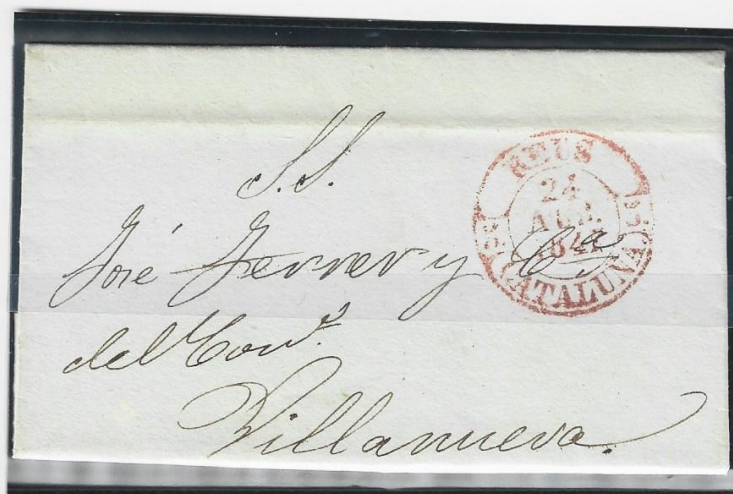 S.S.
José Ferrer y Cª
del Comº
Villanueva.
REUS
24
CATALUÑA